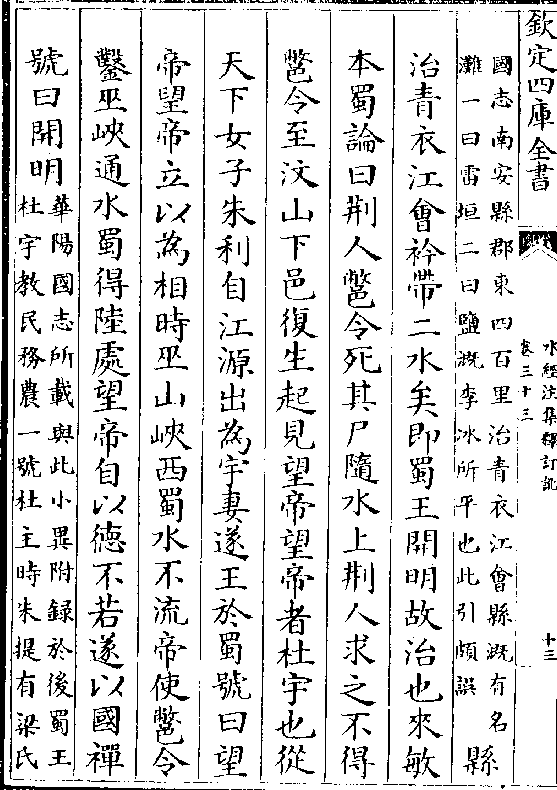 欽定四庫全書
水經注集釋訂訛
卷三十三
十三
國志南安縣郡東四百里治青衣江會縣溉有名
灘一曰雷垣二曰鹽溉李冰所平也此引頗誤
縣
治青衣江會衿帶二水矣即蜀王開明故治也來敏
本蜀論曰荆人鄨令死其尸隨水上荆人求之不得
鄨令至汶山下邑復生起見望帝望帝者杜宇也從
天下女子朱利自江源出為宇妻遂王於蜀號曰望
帝望帝立以為相時巫山峽西蜀水不流帝使鄨令
鑿巫峽通水蜀得陸處望帝自以德不若遂以國禪
號曰開明
華陽國志所載與此小異附録於後蜀王
杜宇教民務農一號杜主時朱提有梁氏